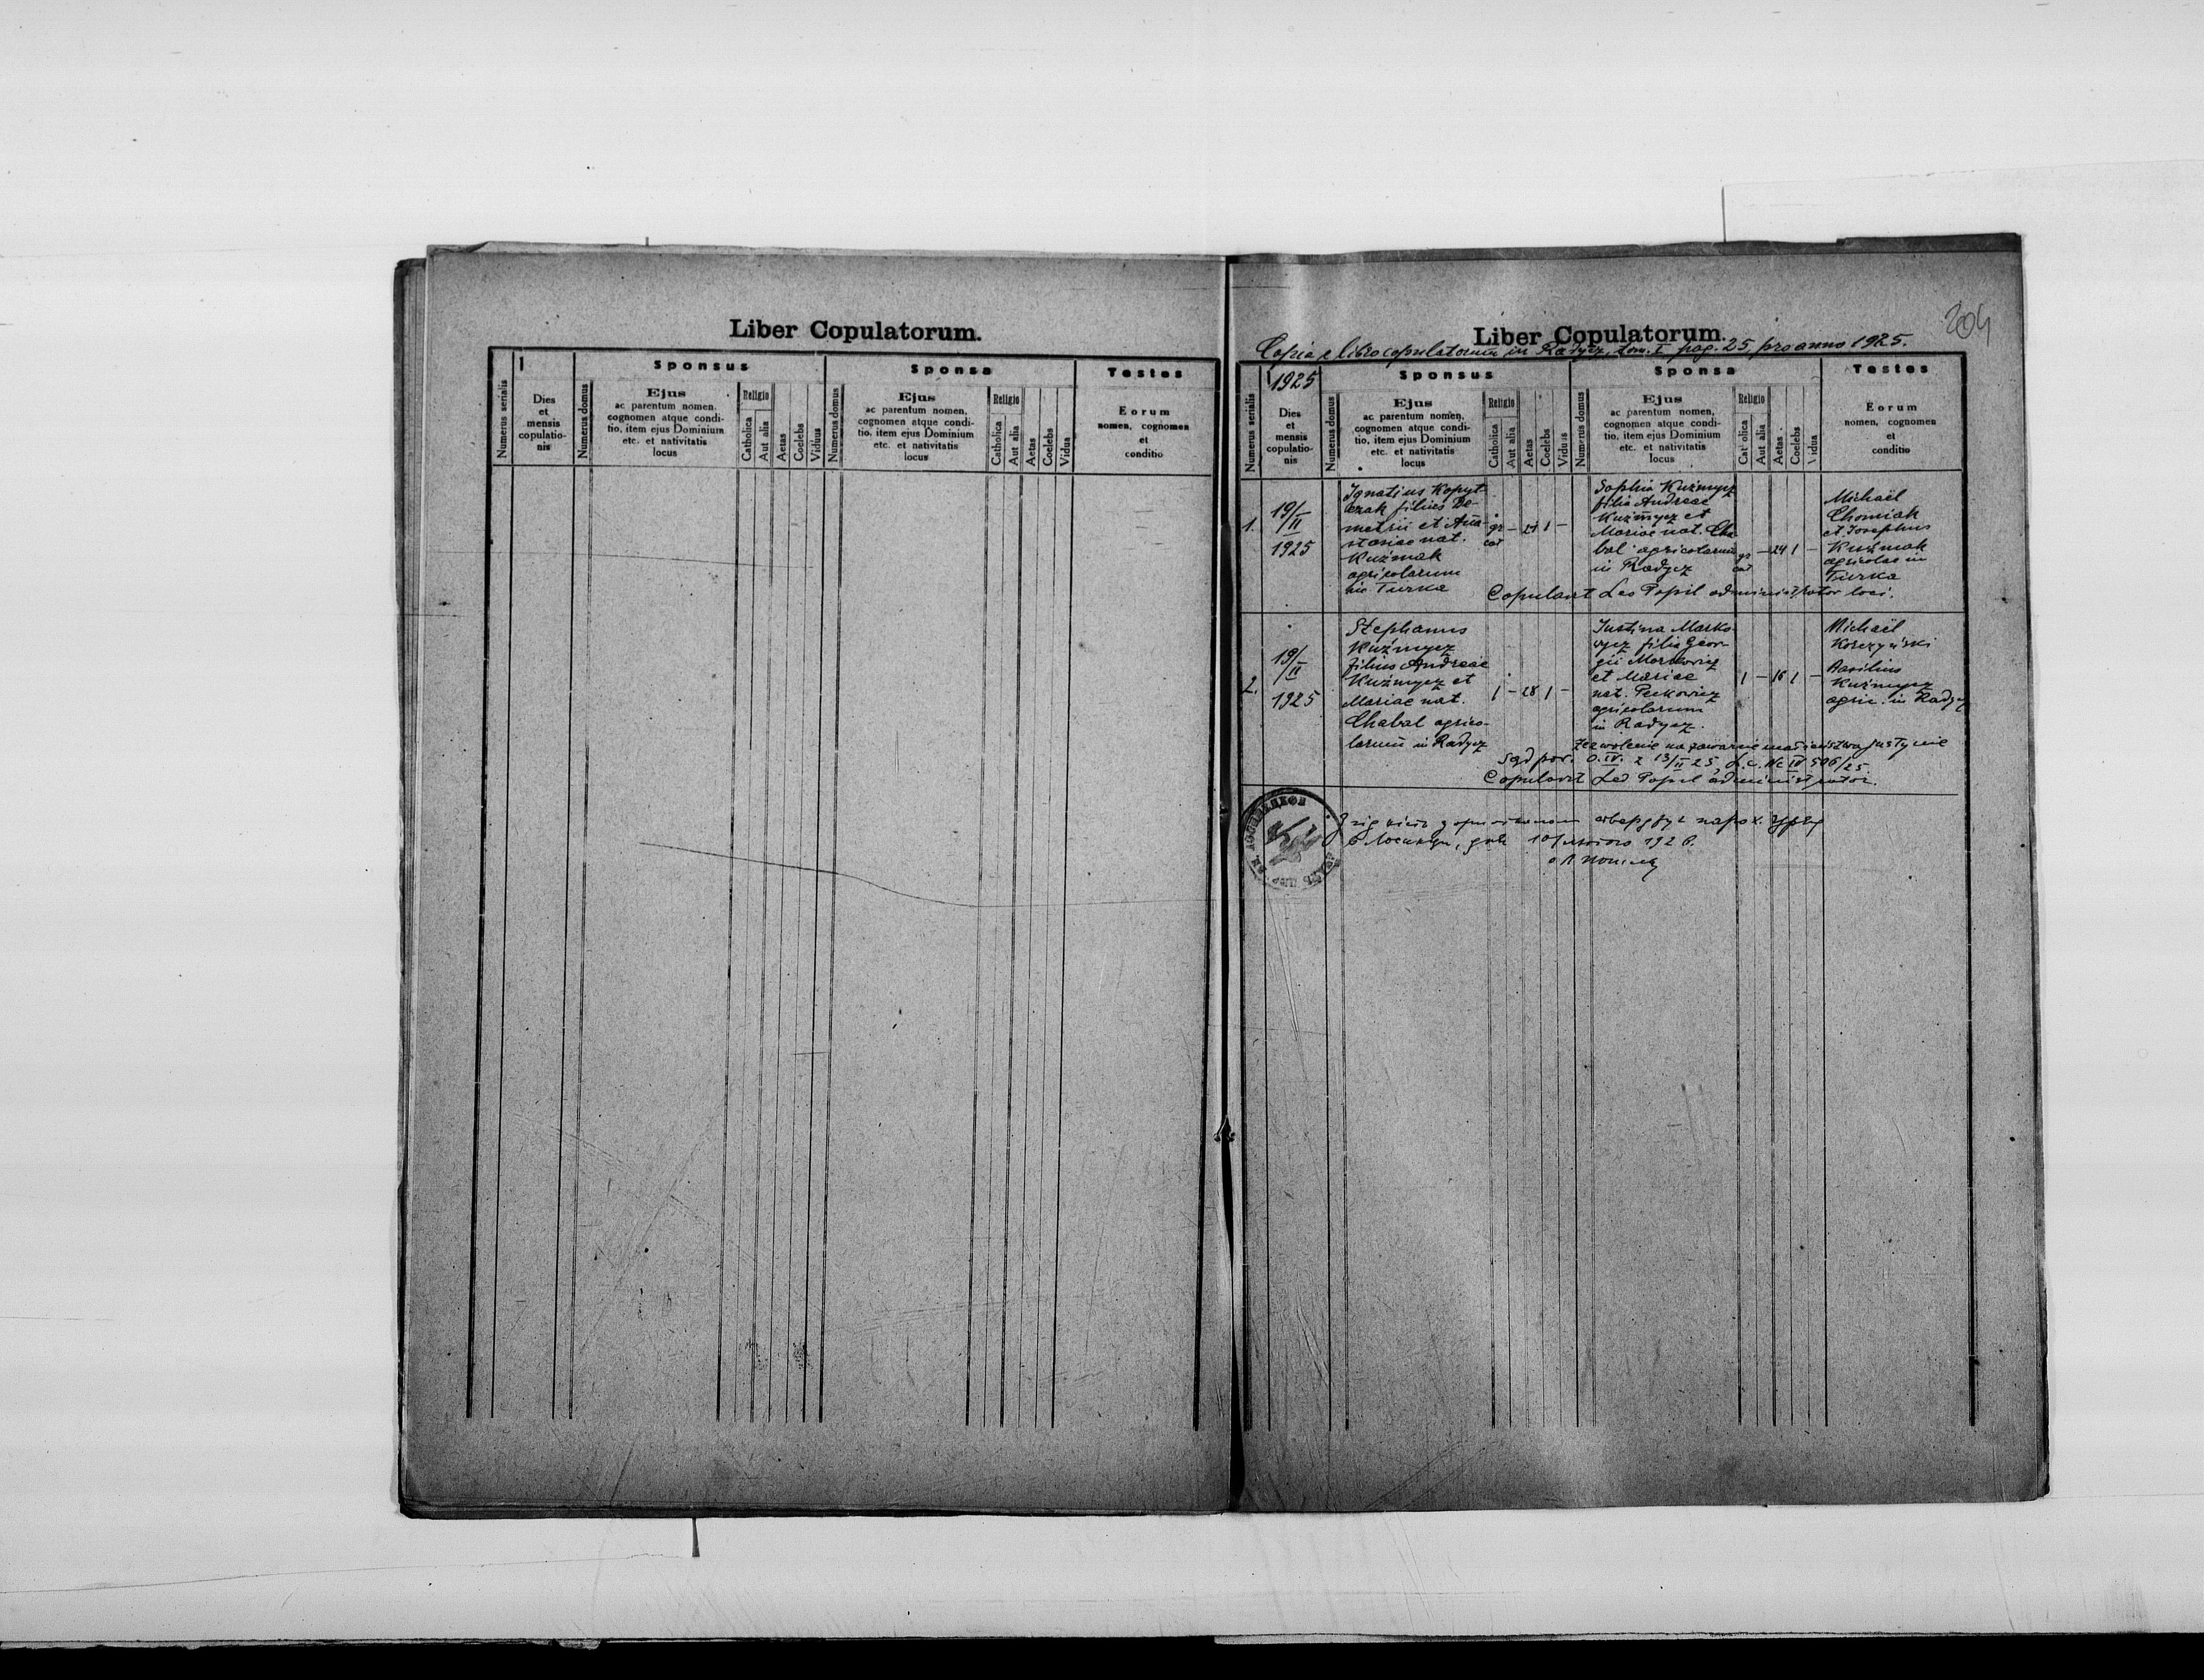 Liber Copulatorum.
1
Numerus serialis
Dies
et
mensis
copulatio-
nis
Numerus domus
Sponsus
Ejus
ac parentum nomen,
cognomen atque condi-
tio, item ejus Dominium
etc. et nativitatis
locus
Religio
Catholica
Aut alia
Aetas
Coelebs
Viduus
Numerus domus
Sponsa
Ejus
ac parentum nomen,
cognomen atque condi-
tio, item ejus Dominium
etc. et nativitatis
locus
Religio
Catholica
Aut alia
Aetas
Coelebs
Vidua
Testes
Eorum
nomen, cognomen
et
conditio
204
Liber Copulatorum.
Copia e libro copulatorum in Radycz, tom. I pag. 25, pro anno 1925.
Numerus serialis
1925
Dies
et
mensis
copulatio-
nis
Numerus domus
Sponsus
Ejus
ac parentum nomen,
cognomen atque condi-
tio, item ejus Dominium
etc. et nativitatis
locus
Religio
Catholica
Aut alia
Aetas
Coelebs
Viduus
Numerus domus
Sponsa
Ejus
ac parentum nomen,
cognomen atque condi-
tio, item ejus Dominium
etc. et nativitatis
locus
Religio
Catholica
Aut alia
Aetas
Coelebs
Vidua
Testes
Eorum
nomen, cognomen
et
conditio
1.
19/II
1925
Ignatius Kopyt-
czak filius De-
metrii et Ana-
stasiae nat.
Kuźmak
agricolarum
in Turka
gr. cat
–
1
–
Sophia Kuźmycz
filia Andreae
Kuźmycz et
Mariae nat. Cha
bal agricolarum
in Radycz
gr. cat
– 24 1 –
Michaël
Chomiak
et Josephus
Kuźmak
agricolae in
Turka
Copulavit Leo Popil administrator loci.
2.
19/II
1925
Stephanus
Kuźmycz
filius Andreae
Kuźmycz et
Mariae nat.
Chabal agrico-
larum in Radycz
1 – 28 1 –
Justina Marko-
wycz filia Geor-
gii Markowicz
et Mariae
nat. Peckowicz
agricolarum
in Radycz.
1 – 16 1 –
Michaël
Korczyński
Basilius
Kuźmycz
agric. in Radycz
Zezwolenie na zawarcie małżeństwa Justynie
Sąd pow. O. IV. z 13/II 25, L. c. Nc IV 506/25
Copulavit Leo Popil administrator.